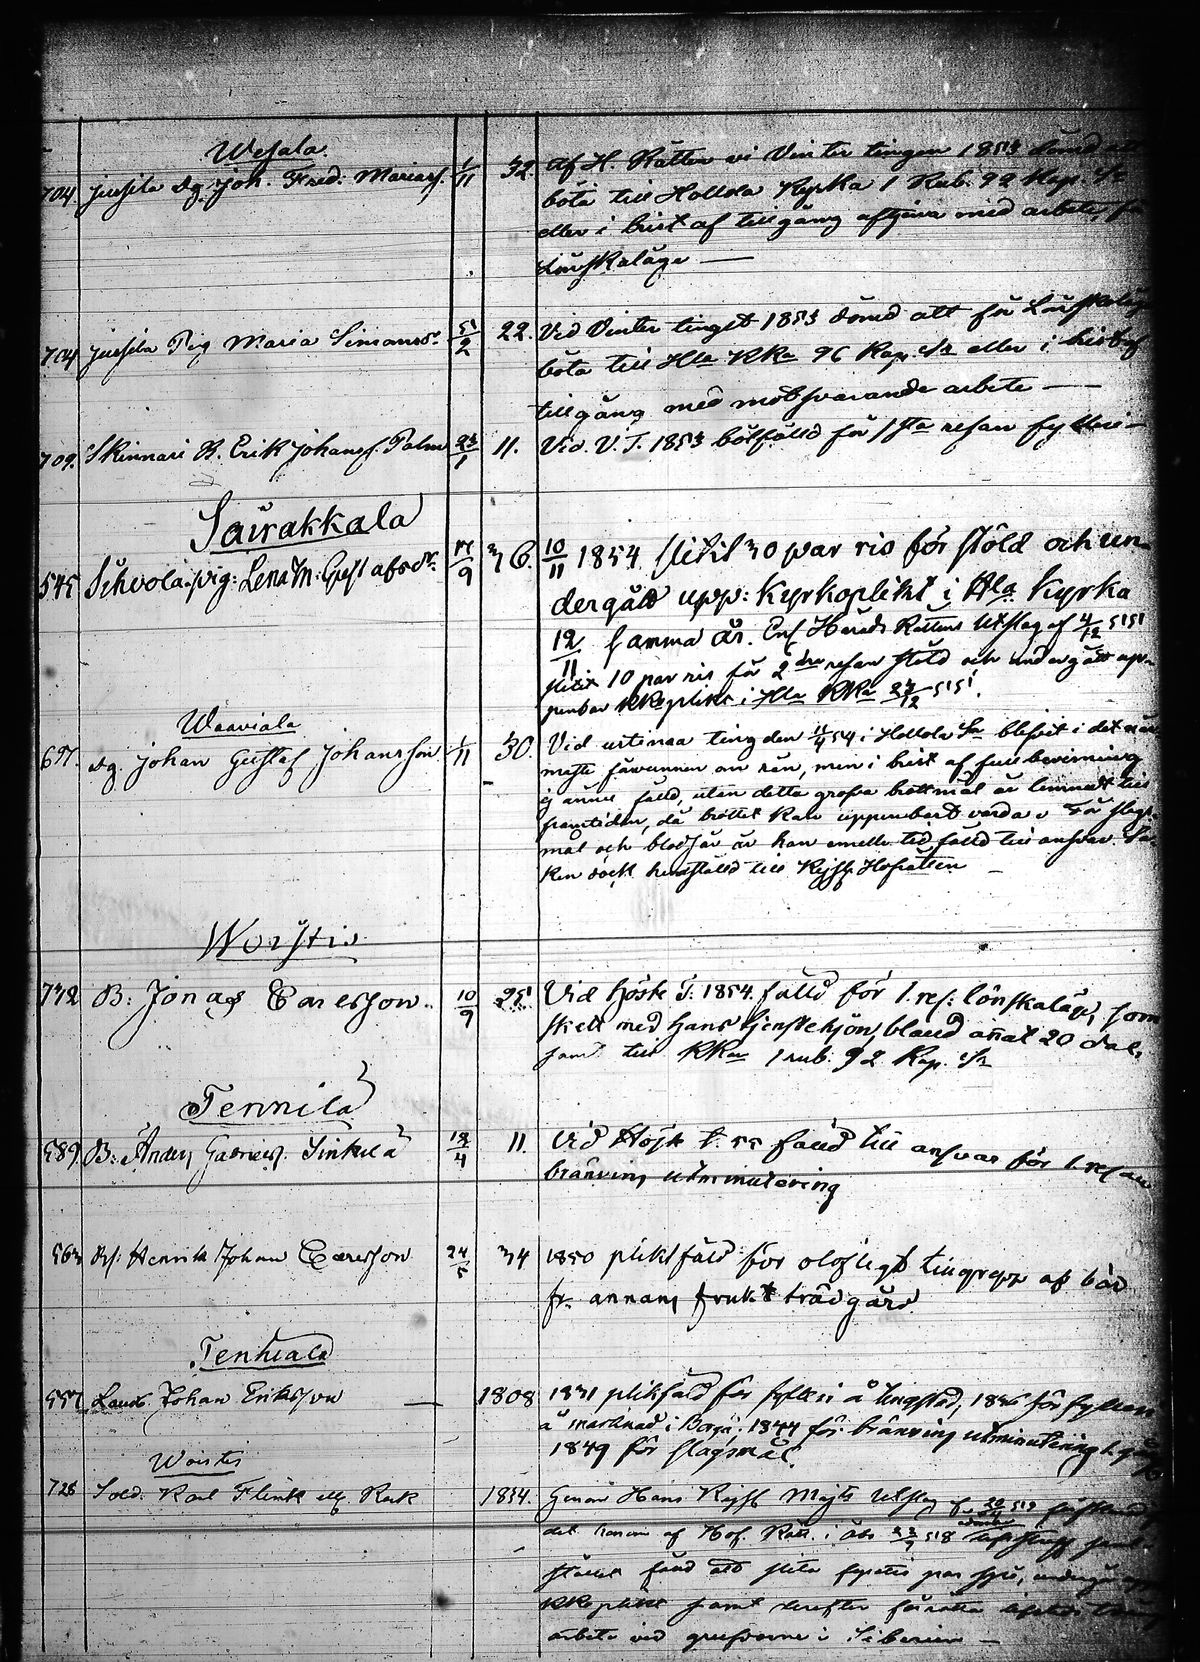 Wesala
704 Jussila Dg. Joh. Fred. Mariass. 1/11 32. Af H. Rätten vi Vinter tingen 1853 dömd att
böta till Hollola Kyrka 1 Rub. 92 Kop. Sr
eller i brist af tillgång aftjena med arbete, för
Lönskaläge —
704 Jussila Pig Maria Simonsdr. 5/2 22. Vid Vinter tinget 1853 dömd att för Lönskaläge
böta till Hla KKa 96 Kop. Sr eller i brist af
tillgång med motsvarande arbete —
709. Skinnari B. Erik Johanss. Palm 23/1 11. Vid V. T. 1853 bötfälld för 1sta resan fylleri —
Sairakkala
545 pig: Lena M: Gustafsdr. 17/9 36. 10/11 1854 slitit 30 par ris för stöld och un-
dergått upp: Kyrkoplikt i Hla Kyrka
12/11 samma år. Enl Härads Rättens Utslag af 4/12 55
slitit 10 par ris för 2dra resan stöld och undergått up-
penbar KKoplikt i Hla KKa 27/12 55.
Waaviala
697. Dg. Johan Gustaf Johansson 1/11 30. Vid urtima ting den 11/4 54 i Hollola Sn blefvit i det när-
maste förvunnen om rån, men i brist af full bevisning
ej ännu fälld, utan detta grofva brottmål är lemnadt till
framtiden, då brottet kan uppenbart varda. För slags-
mål och blodsår är han emellertid fälld till ansvar. Sa-
ken dock hemställd till Kejs. Hofrätten —
Worstis
772 B: Jonas Carlsson. 10/9 25. Vid Höste T: 1854 fälld för 1. res: lönskaläge, som
skett med hans tjenstehjon, bland annat 20 dal.
samt till KKan 1 rub. 92 Kop. Sr
Tennilä
589. B: Anders Gabrielss. Sinkilä 12/4 11. Vid Höst t. 55 fälld till ansvar för 1. resan
bränvins utminutering
563 Henrik Johan Carlsson 24/5 34 1850 pliktfäld för olofligt tillgrepp af bär
fr. annans frukt trädgård
Tenhiala
557 Landb. Johan Eriksson — 1808 1831 pliktfäld för fylleri å tingstad, 1836 för fylleri
å marknad i Borgå. 1844 för bränvins utminutering 1. gång
1849 för slagsmål.
Worstis
728 Sold. Karl Flink ell. Rask 1834. Genom Hans Kejs Majts Utslag
det af Hof. Rätt. i Åbo
slita par spö, undergå
KKoplikt samt derefter förrätta
arbete ved grufvorne i Siberien —